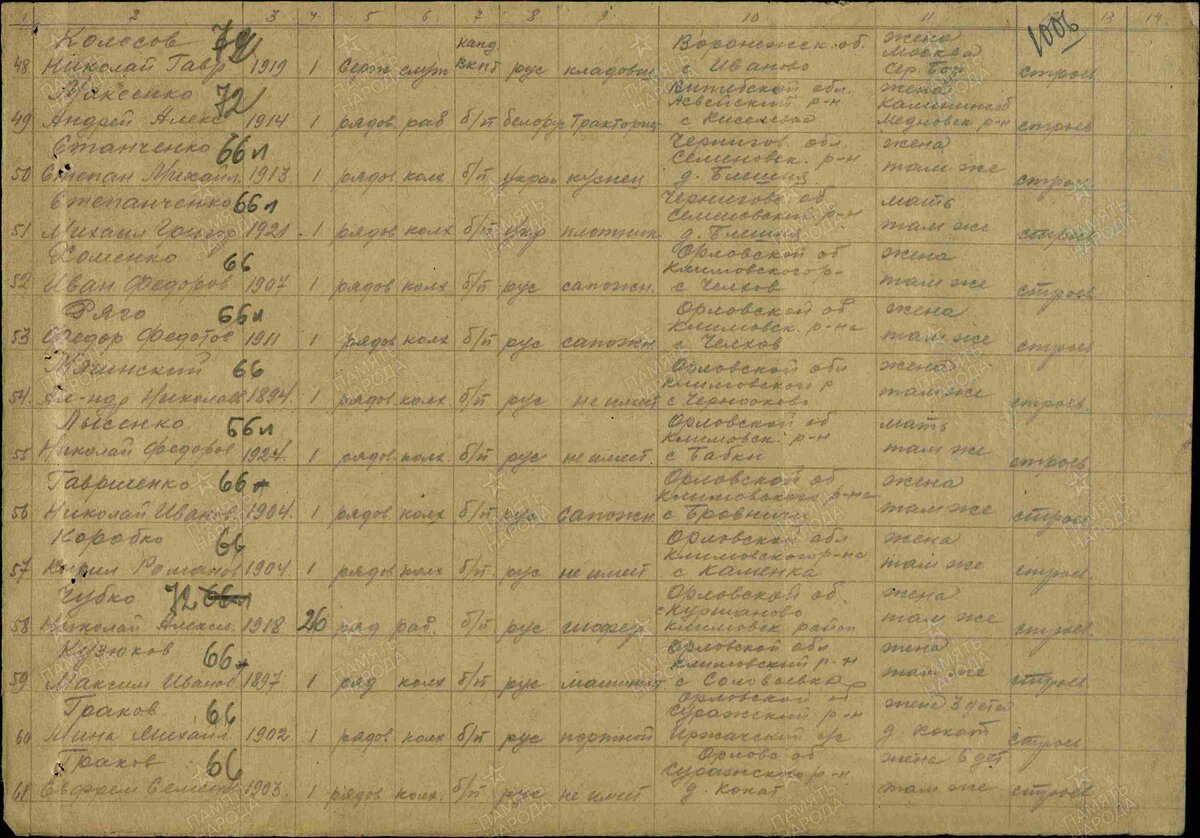 1 2 3 4 5 6 7 8 9 10 11 13 14
1006
Колосов 72
канд
Воронежск. об
жена
Москва
48 Николай Гавр 1919 1 Серж служ вкпб рус кладовщ с Иваново сер. строев
Максенко 72
Витебской обл.
Асвейский р-н
жена
49 Андрей Алекс 1914 1 рядов раб б/п белорус Тракторис с Киселево Медновск р-н строев
Станченко 66л
Чернигов. обл.
Семеновск. р-н
жена
50 Степан Михаил. 1913 1 рядов колх б/п украи кузнец д. Блешня там же строев
Степанченко 66л
Черниговс об
Семеновский р-н
мать
51 Михаил Григор 1921 1 рядов колх б/п укр плотник д. Блешня там же строев
Хоменко 66
Орловской об
Климовского р-
жена
52 Иван Федоров 1907 1 рядов колх б/п рус сапожн. с Челхов там же строев
Ряго 66л
Орловской об
Климовск. р-на
жена
53 Федор Федотов 1911 1 рядов колх б/п рус сапожн с Челхов там же строев
Мачинский 66
Орловской обл
Климовского р
жена
54 Ал-ндр Николаев 1894 1 рядов колх б/п рус не имеет с Чернооково там же строев
Лысенко 66л
Орловской об
Климовск. р-н
мать
55 Николай Федоров 1924 1 рядов колх б/п рус не имеет с Бабки там же строев
Гавриленко 66
Орловской об
Климовского р-на
жена
56 Николай Иванов 1904. 1 рядов колх б/п рус сапожн с Бровничи там же строев
Коробко 66
Орловской обл
Климовского р-на
жена
57 Кирил Романов 1904. 1 рядов колх б/п. рус не имеет с Каменка там же строев
Чубко 72 66л
Орловской об.
с Куршаново
жена
58 Николай Алексе. 1918 26 ряд раб. б/п рус шофер Климовск район там же строев
Кузюков 66
Орловской обл
Климовский р-н
жена
59 Максим Иванов 1897 1 ряд колх б/п рус машинист с Соловьевка там же строев
Граков 66
Орловской об
Суражский р-н
жена 3 дета
60 Мина Михаил 1902 1 рядов колх б/п рус портной Иржачский с/с д. Кокот строев
Граков 66
Орловс об
Суражского р-н
жена 6 дет
61 Евфрем Семенов 1903. 1 рядов колх. б/п рус не имеет д. Кокот там же строев
ПАМЯТЬ НАРОДА